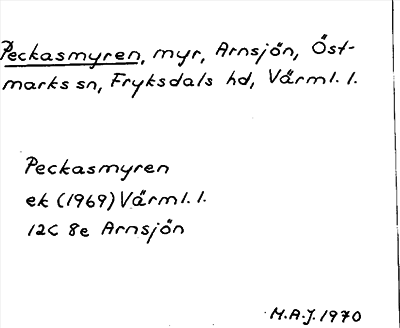 Peckasmyren, myr, Arnsjön, Öst-
marks sn, Fryksdals hd, Värml. l.
Peckasmyren
ek (1969) Värml. l.
12C 8e Arnsjön
M.A.J. 1970